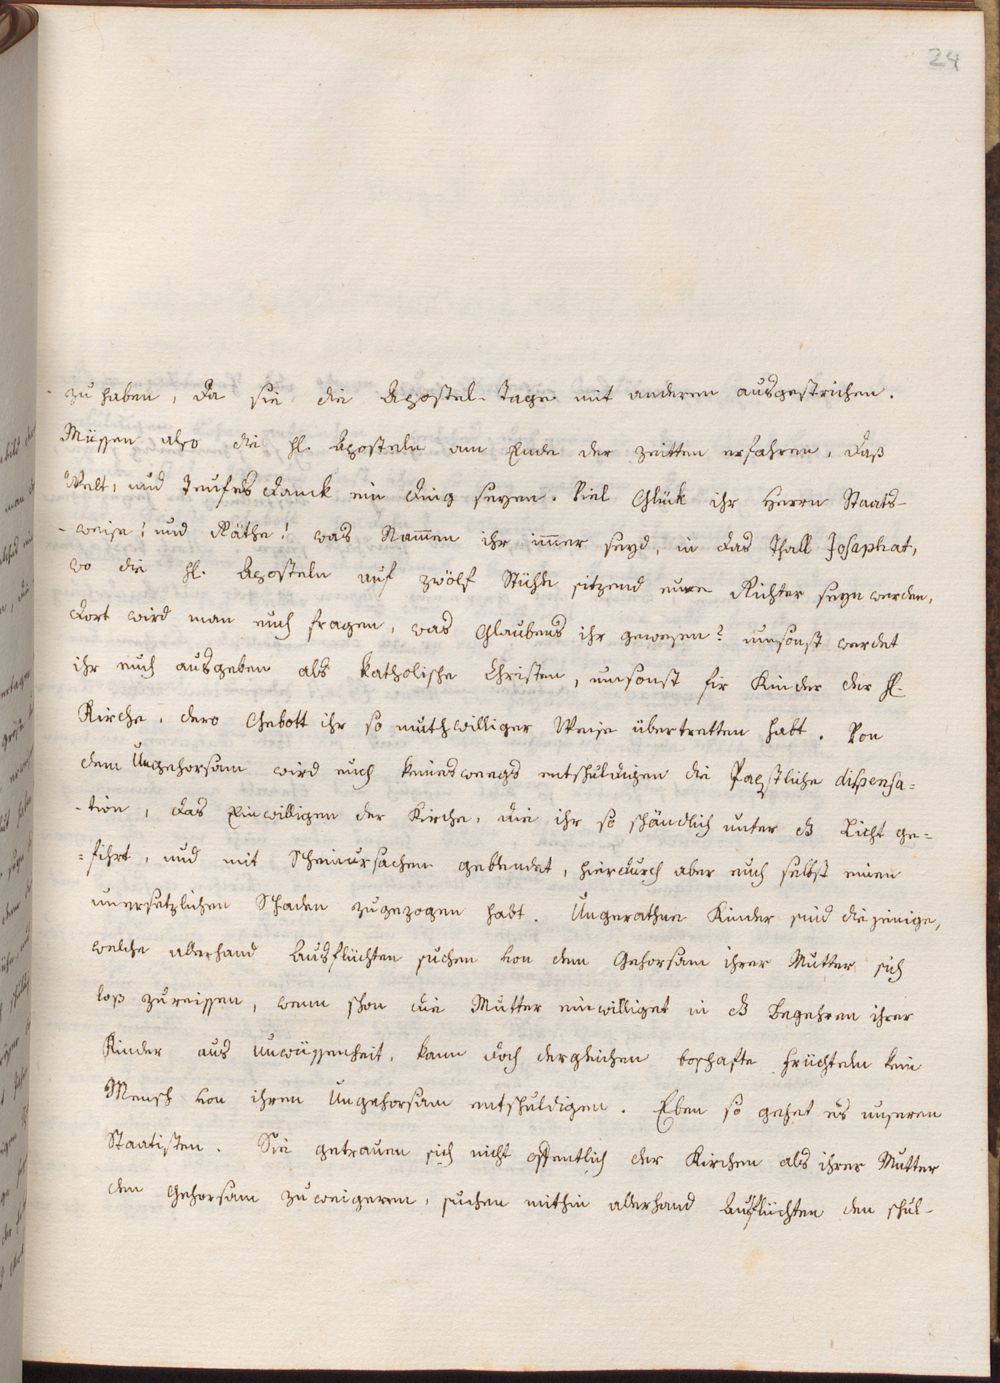 24
-zu haben, da sie die Apostel-Tage mit anderen ausgestrichen.
Müssen also die hl. Aposteln am Ende der zeitten erfahren, daß
Welt, und Teufels danck ein ding seyen. Viel Glük ihr Herrn Staats-
-weise! und Räthe! was Nam̄en ihr im̄er seyd, in das Thall Josaphat,
wo die hl. Aposteln auf zwölf Stühle sitzend eure Richter seyn werden,
dort wird man euch fragen, was Glaubens ihr gewesen? umsonst werdet
ihr euch ausgeben als katholische Christen, umsonst fir Kinder der hl.
Kirche, dero Gebott ihr so muthwilliger Weise übertretten habt. Von
dem Ungehorsam wird euch keineswegs entschuldigen die Paepstliche dispensa=
-tion, das Einwilligen der Kirche, die ihr so schändlich unter dz Licht ge=
=führt, und mit Scheinursachen geblendet, hierdurch aber euch selbst einen
unersetzlichen Schaden zugezogen habt. Ungerathne Kinder sind diejenige,
welche allerhand Ausflüchten suchen von dem Gehorsam ihrer Mutter sich
loß zureissen, wenn schon die Mutter einwilliget in dz Begehren ihrer
Kinder aus Unwüssenheit, kann doch dergleichen boshafte Früchteln kein
Mensch von ihrem Ungehorsam entschuldigen. Eben so gehet es unseren
Staatisten. Sie getrauen sich nicht offentlich der Kirchen als ihrer Mutter
den Gehorsam zuweigeren, suchen mithin allerhand Ausflüchten den schul-